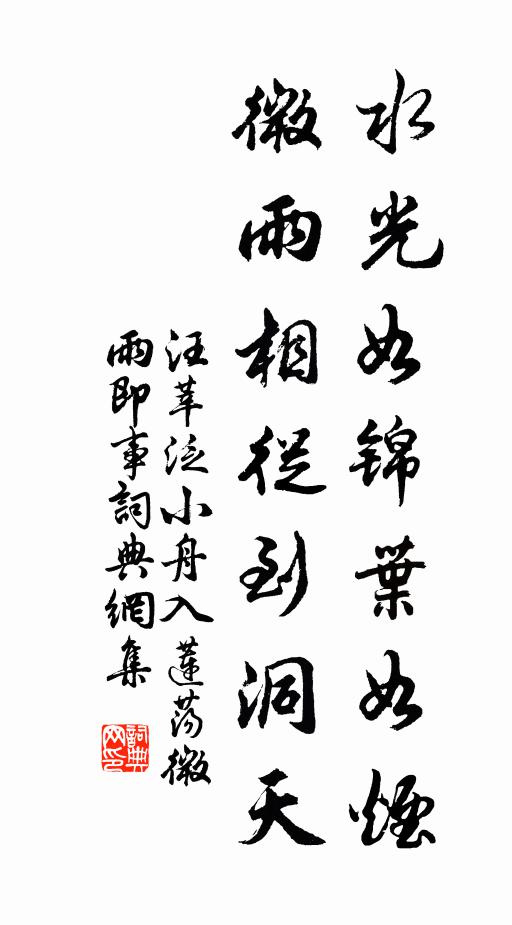 水光如錦葉如煙
微雨相從到洞天
汪莘泛小舟入蓮蕩微
雨即事詞典網集
詞典網印